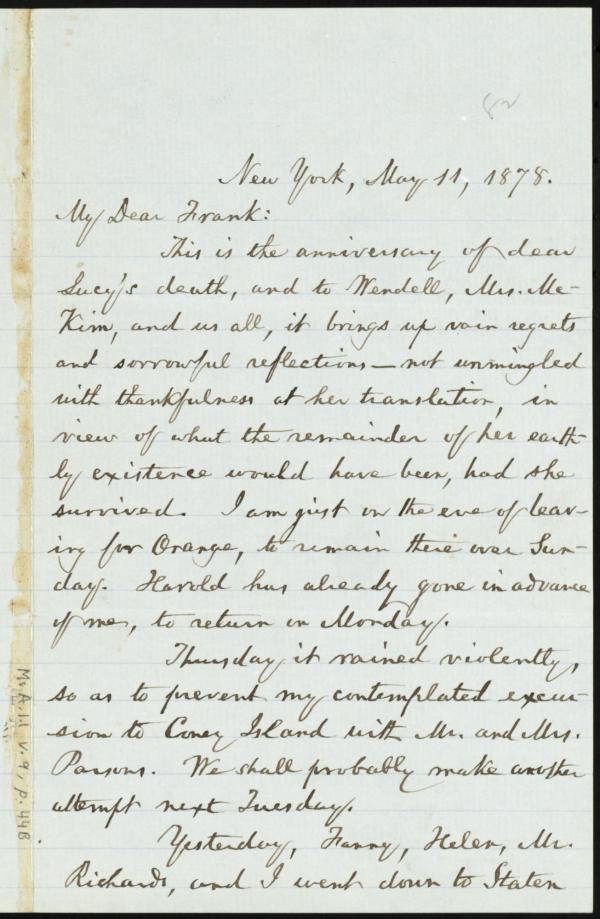 82
New York, May 11, 1878.
My Dear Frank:
This is the anniversary of dear
Lucy's death, and to Wendell, Mrs. Mc-
Kim, and us all, it brings up vain regrets
and sorrowful reflections—not unmingled
with thankfulness at her translation, in
view of what the remainder of her earth-
ly existence would have been, had she
survived. I am just on the eve of leav-
ing for Orange, to remain there over Sun-
day. Harold has already gone in advance
of me, to return on Monday.
Thursday it rained violently,
so as to prevent my contemplated excur-
sion to Coney Island with Mr. and Mrs.
Parsons. We shall probably make another
attempt next Tuesday.
Yesterday, Fanny, Helen, Mr.
Richards, and I went down to Staten
Ms. A. 1.1 v. 9, p. 44B